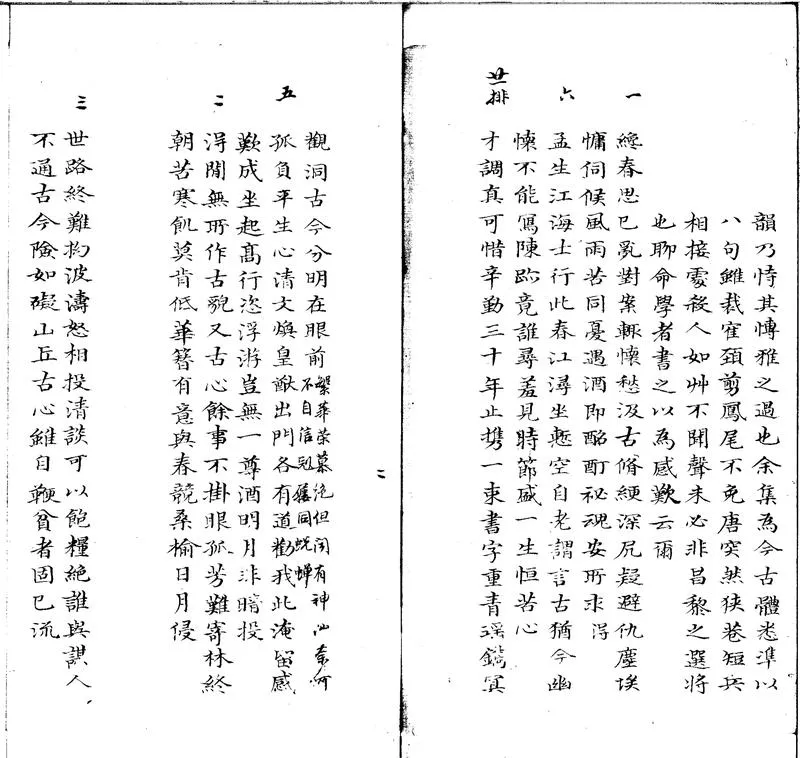 韻乃恃其愽雅之過也余集為今古體悉準以
八句雖裁寉頚剪鳳尾不免唐突然狭巷短兵
相接處殺人如艸不聞聲未必非昌黎之選將
也聊命學者書之以為感歎云爾
一
緫春思已亂對案輒懷愁汲古脩綆深凥疑避仇塵埃
慵伺候風雨苦同憂遇酒即酩酊祕魂安所求浔
六
孟生江海士行此春江潯坐懸空自老謂言古猶今幽
懷不能寫陳跡竟誰尋羞見時節盛一生恒苦心
廿排
才調真可惜辛勤三十年止携一束書字重青瑶鐫冥
二
觀洞古今分明在眼前
繁華榮慕絶但聞有神仙奈何
不自信冠舊同蛻蟬
五
孤負平生心清文煥皇猷出門各有道勸我此淹留感
歎成坐起高行恣浮游豈無一尊酒明月非暗投
二
浔閒無所作古貌又古心餘事不掛眼孤芳難寄林終
朝苦寒飢莫肯低華簪有意與春競桑榆日月侵
三
世路終難拘波濤怒相投清談可以飽糧絶誰與謀人
不通古今險如礙山丘古心雖自鞭貧者固已流